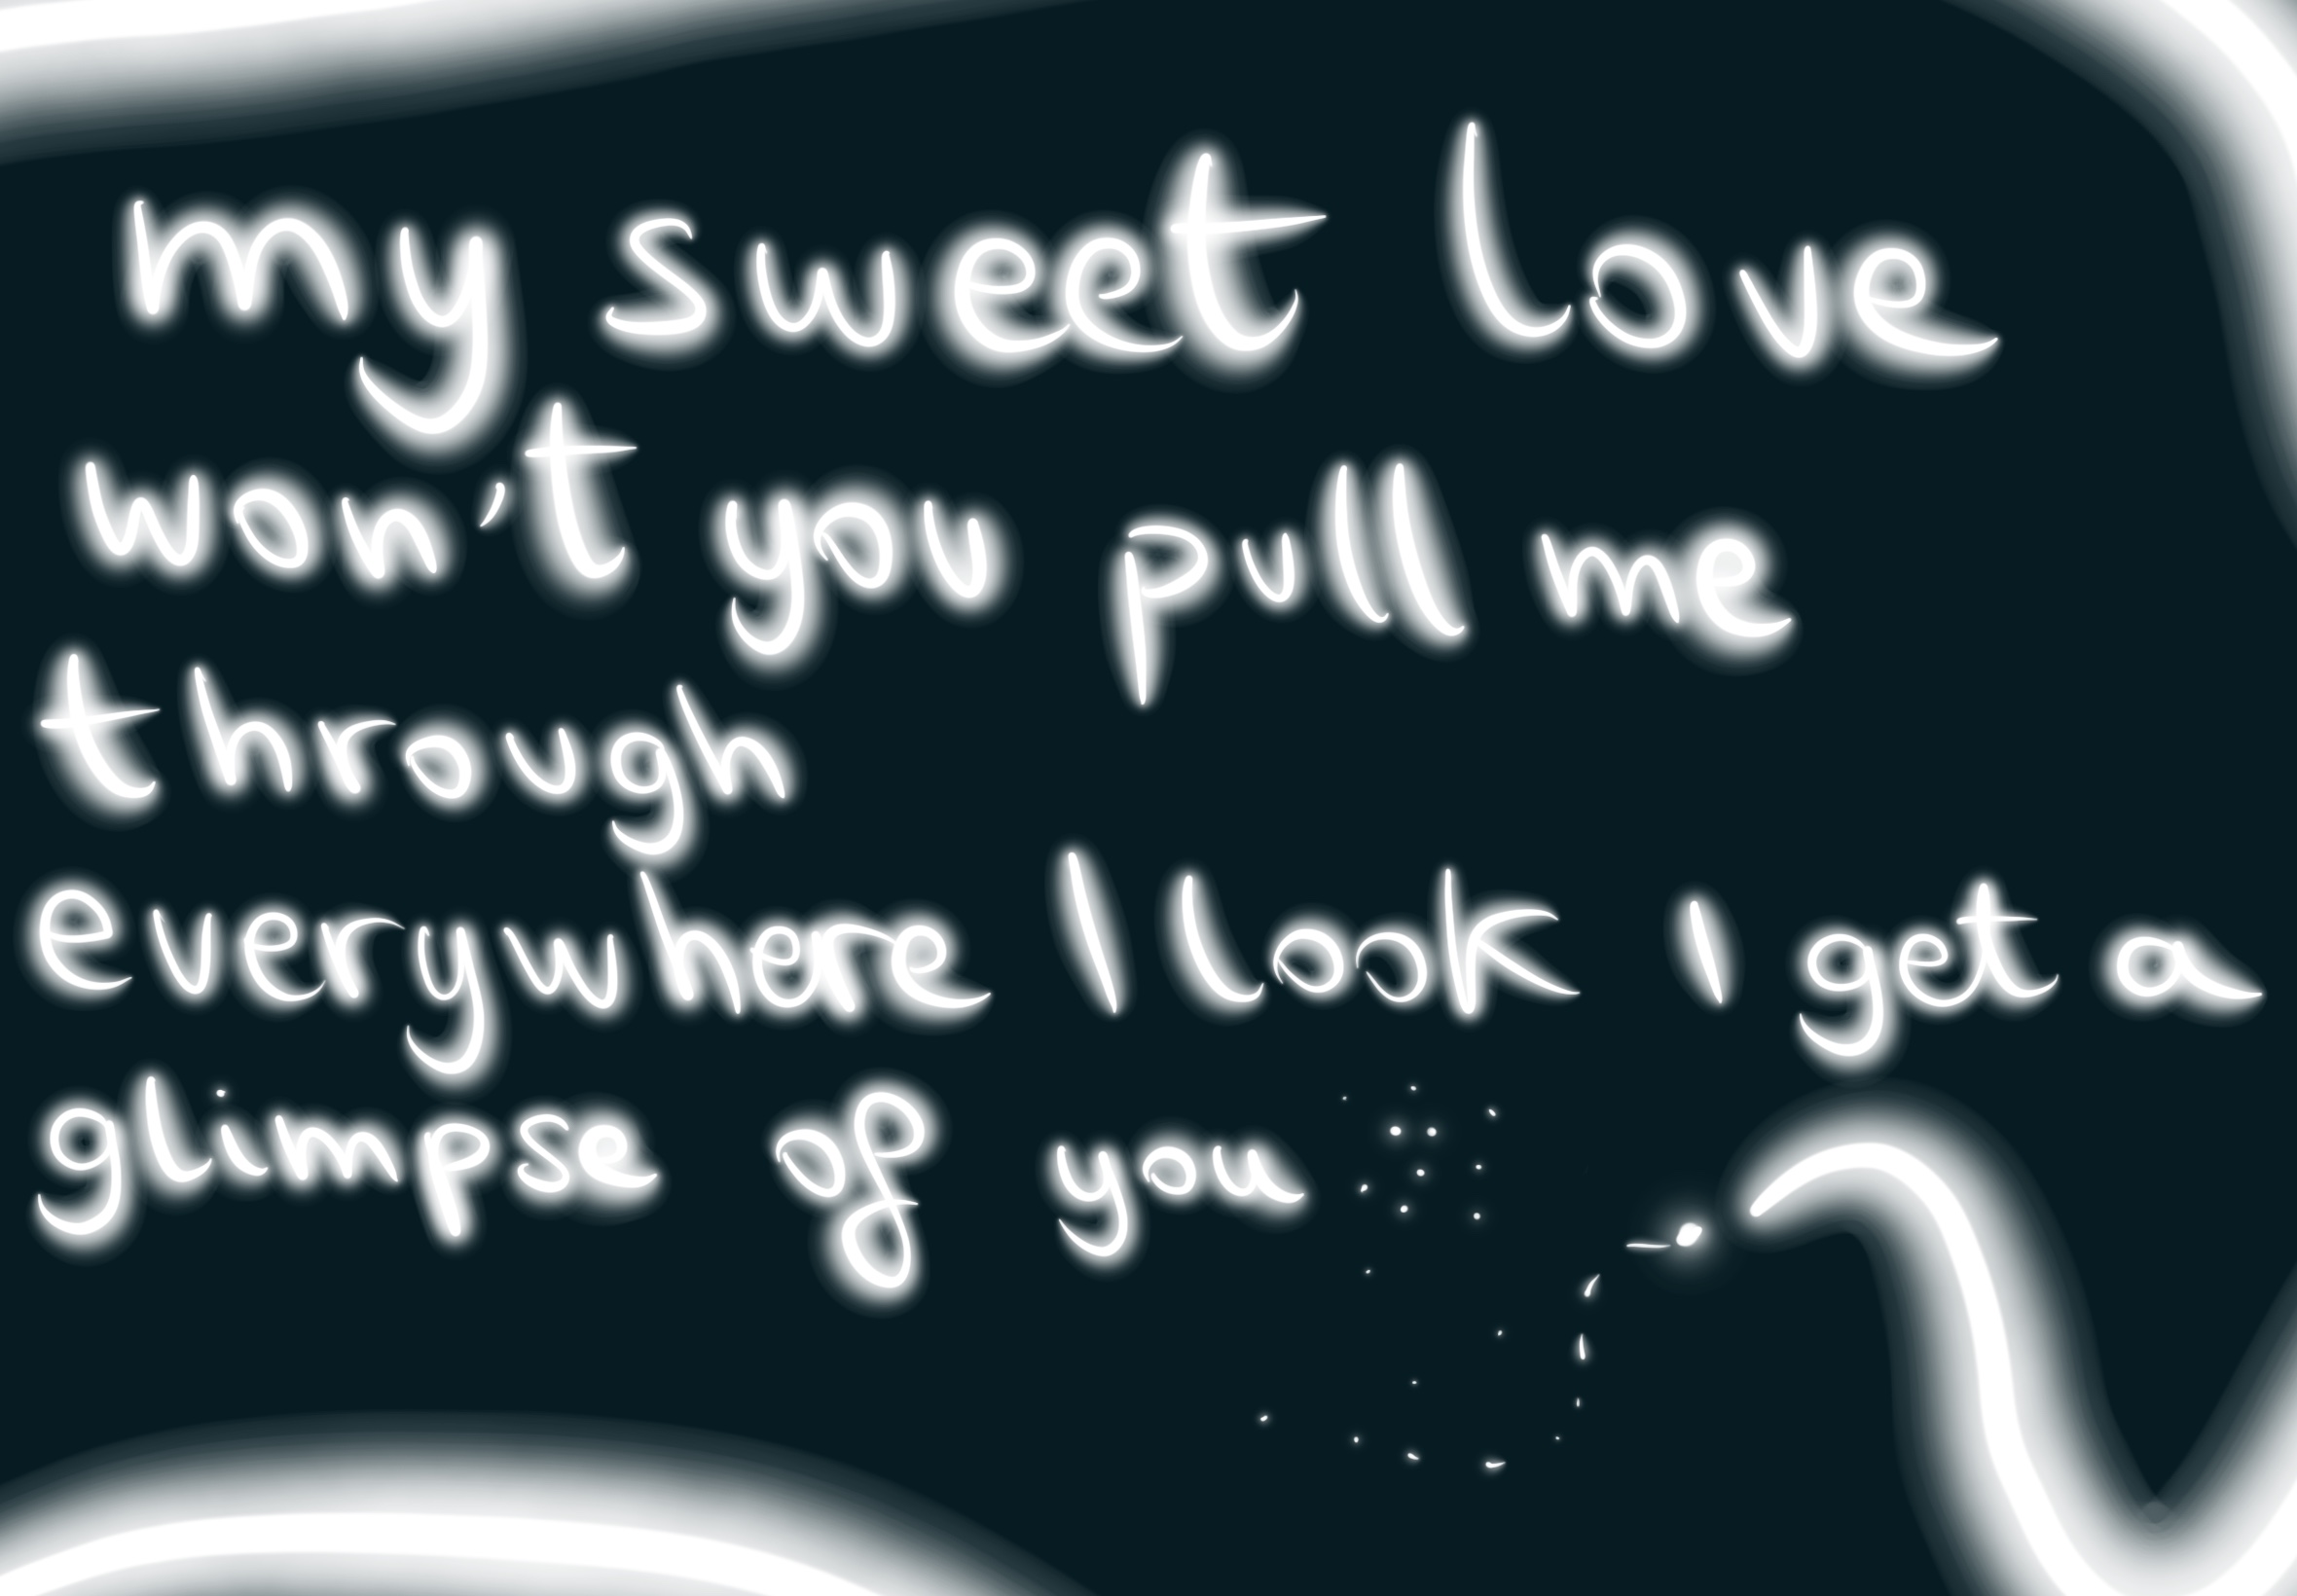 my sweet love
won't you pull me
through
everywhere I look I get a
glimpse of you